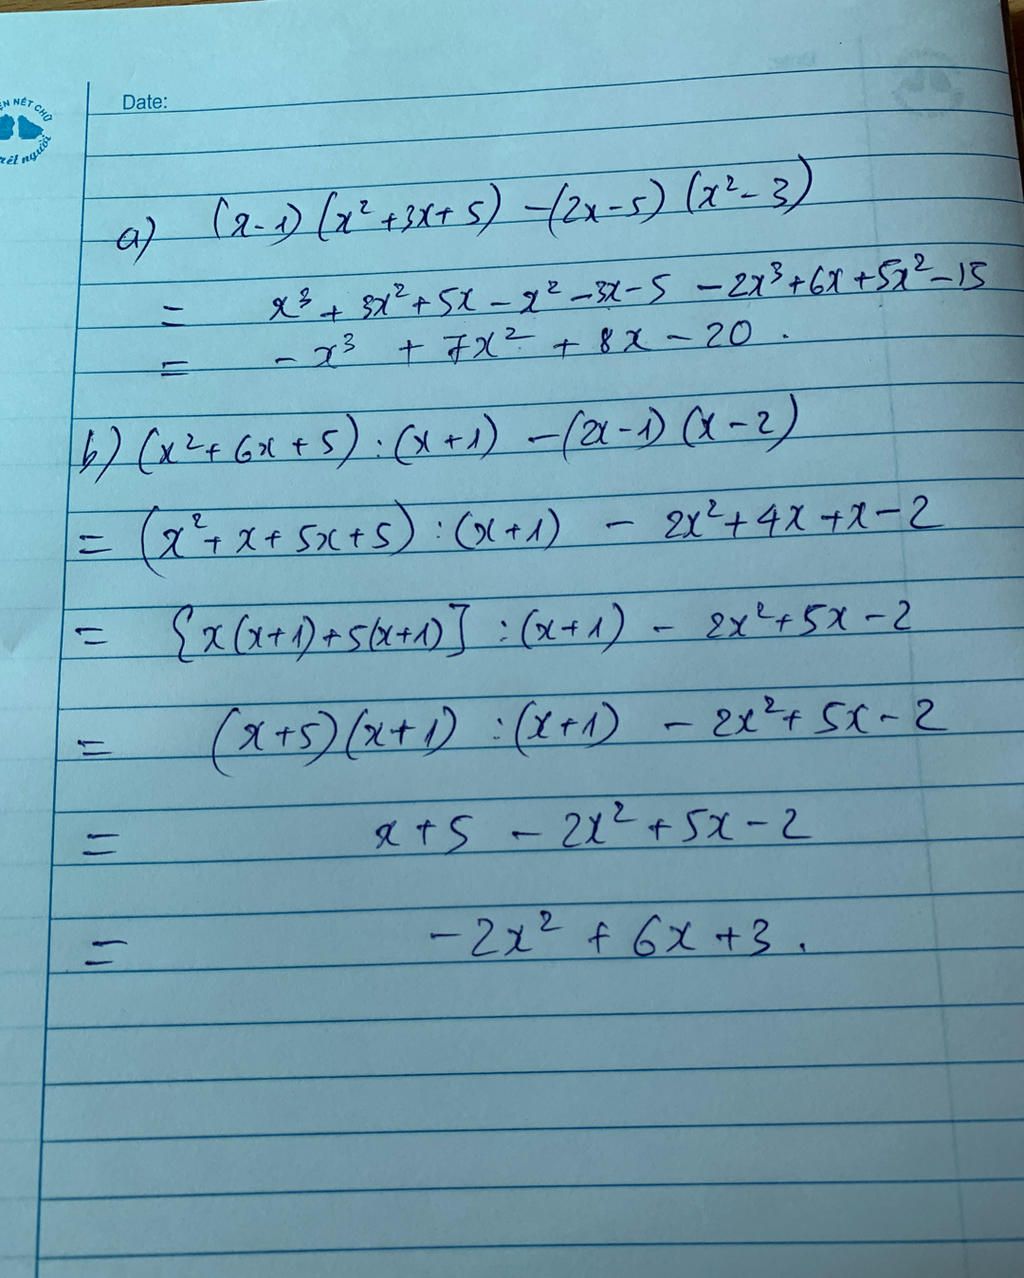 ỆN NẾT CHỮ
nết người
Date:
a) (x-1)(x²+3x+5) -(2x-5)(x²-3)
= x³ + 3x²+5x - x² -3x-5 -2x³+6x+5x²-15
= -x³ + 7x² + 8x - 20 .
b) (x²+6x+5):(x+1) -(2x-1)(x-2)
= (x²+x+5x+5):(x+1) - 2x²+4x+x-2
= {x(x+1)+5(x+1)] :(x+1) - 2x²+5x-2
= (x+5)(x+1) :(x+1) - 2x²+5x-2
= x+5 - 2x²+5x-2
= -2x² + 6x+3 .